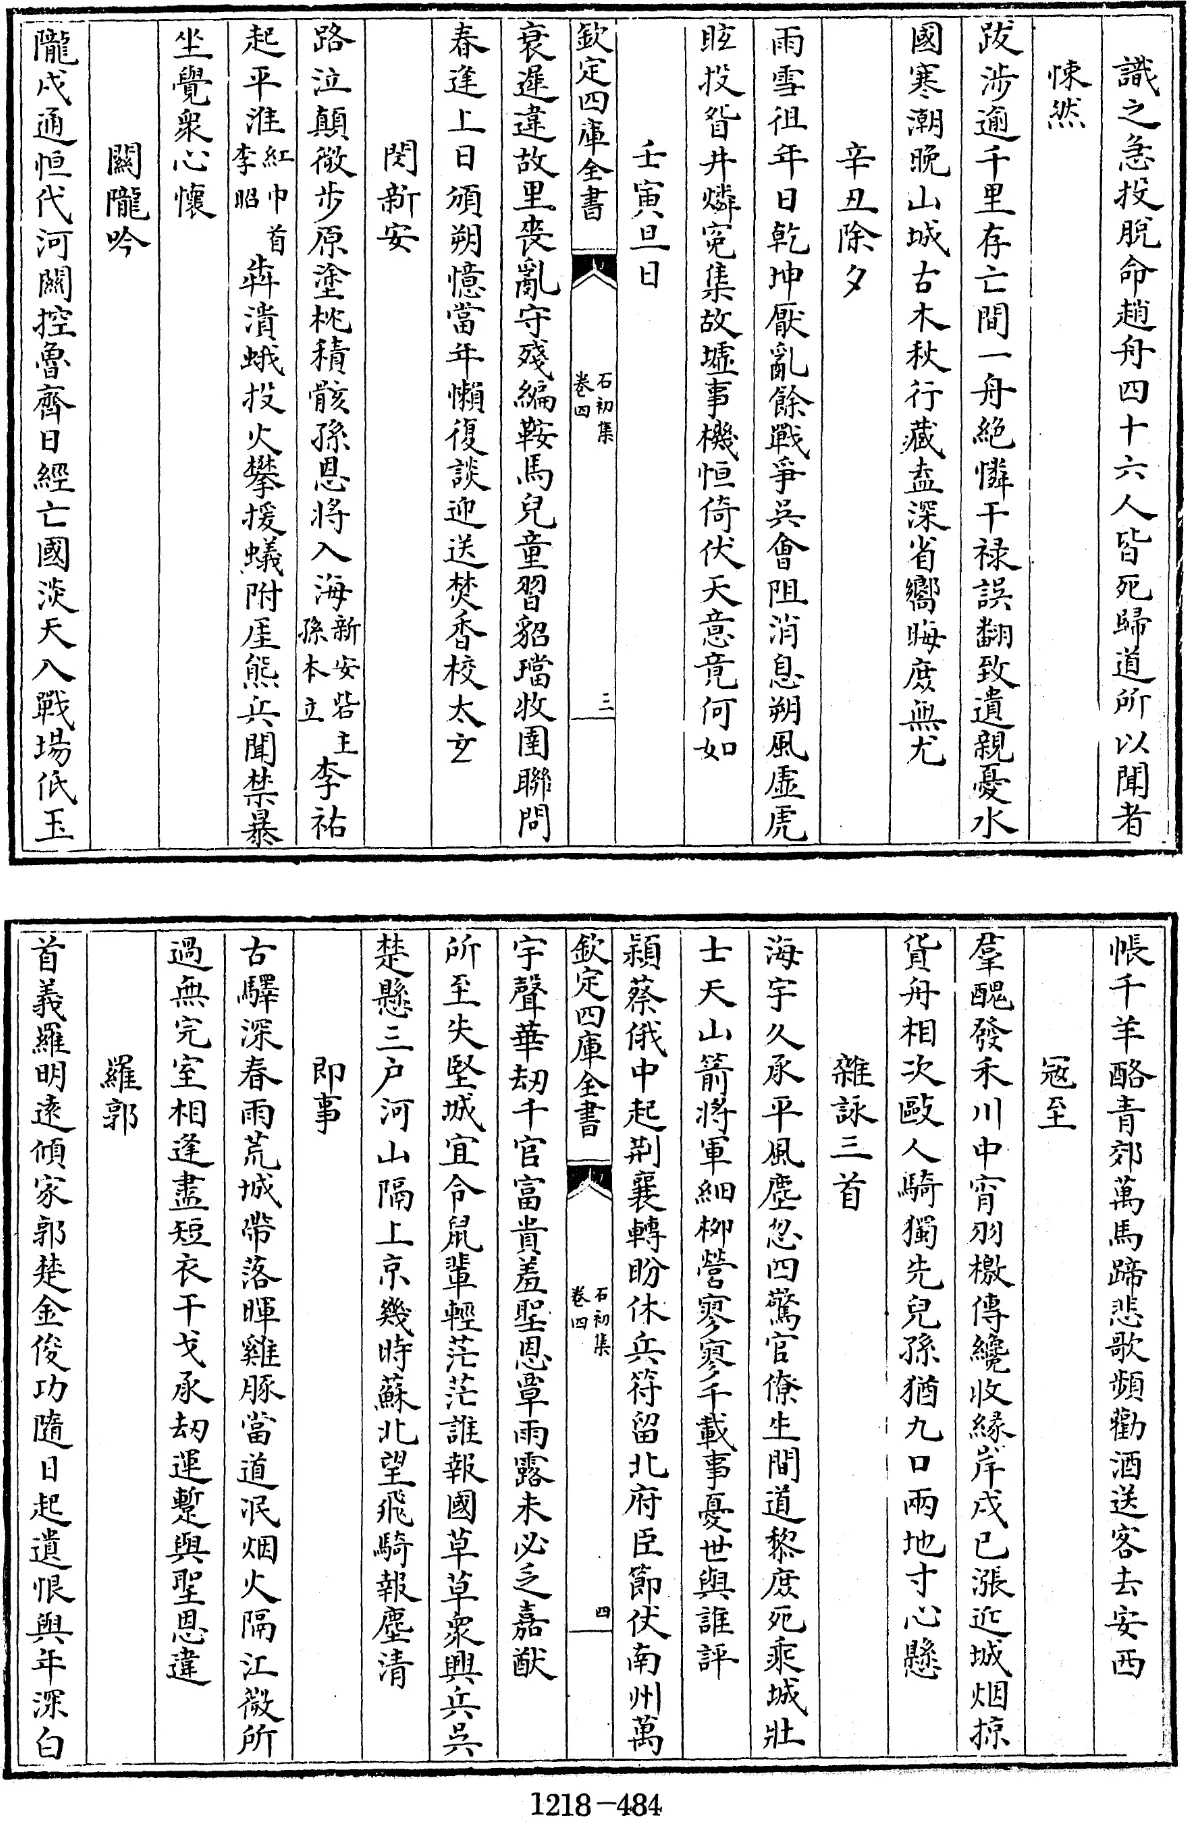 識之急投脫命趙舟四十六人皆死歸道所以聞者
悚然
跋涉逾千里存亡間一舟絶憐干禄誤翻致遺親憂水
國寒潮晩山城古木秋行藏盍深省嚮晦庶無尤
辛丑除夕
雨雪徂年日乾坤厭亂餘戰爭吳會阻消息朔風虛虎
旺投眢井燐寃集故墟事機恒倚伏天意竟何如
壬寅旦日
欽定四庫全書
石初集
卷四
三
衰遲違故里喪亂守殘編鞍馬兒童習貂璫牧圉聯問
春逢上日頒朔憶當年懶復談迎送焚香校太玄
閔新安
路泣顛微步原塗枕積骸孫恩將入海新安砦主孫本立李祐
起平淮紅巾首李昭犇潰蛾投火攀援蟻附厓熊兵聞禁暴
坐覺衆心懷
關隴吟
隴戍通恒代河關控魯齊日經亡國淡天入戰場低玉
帳千羊酪青郊萬馬蹄悲歌頻勸酒送客去安西
冦至
羣醜發禾川中宵羽檄傳纔收緣岸戍已漲近城烟掠
貨舟相次毆人騎獨先兒孫猶九口兩地寸心懸
雜詠三首
海宇久承平風塵忽四驚官僚生間道黎庶死乘城壯
士天山箭將軍細柳營寥寥千載事憂世與誰評
潁蔡俄中起荆襄轉盼休兵符留北府臣節伏南州萬
欽定四庫全書
石初集
卷四
四
宇聲華刼千官富貴羞聖恩覃雨露未必乏嘉猷
所至失堅城宜令鼠輩輕茫茫誰報國草草衆興兵吳
楚懸三户河山隔上京幾時蘇北望飛騎報塵清
即事
古驛深春雨荒城帶落暉雞豚當道泯烟火隔江微所
過無完室相逢盡短衣干戈承刼運蹔與聖恩違
羅郭
首義羅明遠傾家郭楚金俊功隨日起遺恨與年深白
1218-484